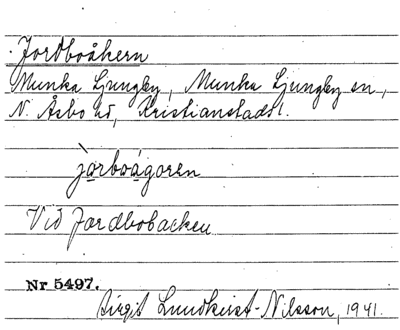 Jordboåkern
Munka Ljungby, Munka Ljungby sn,
N. Åsbo hd, Kristianstads l.
jòrboágoren
Vid Jordbobacken
Nr 5497.
Birgit Lundkvist-Nilsson, 1941.